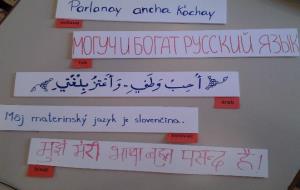 Parlanay ancha k'achay
МОГУЧ И БОГАТ РУССКИЙ ЯЗЫК
rus
أُحِبُّ وَطَنِي - وَأَعْتَزُّ بِلُغَتِي
arab
Môj materinský jazyk je slovenčina.
slovensky
मुझे मेरी भाषा बहुत पसन्द है।
hindi